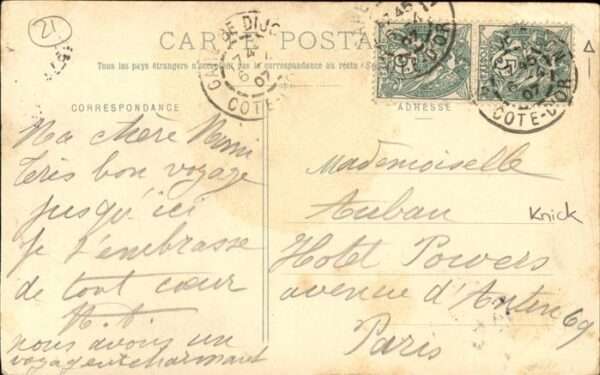 21
CARTE POSTALE
Tous les pays étrangers n'acceptent pas la correspondance au recto
CORRESPONDANCE
ADRESSE
GARE DE DIJON
17 45
4
6 07
COTE-D'OR
Ma chère Mimi
Très bon voyage
jusqu'ici
Je t'embrasse
de tout cœur
nous avons un
voyage charmant
Mademoiselle
Auban
Hotel Powers
avenue d'Antin 69
Paris
Knick